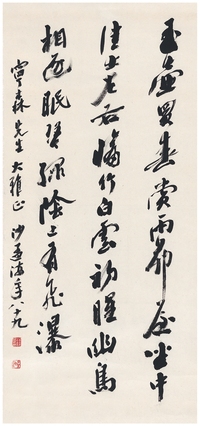 玉壺買春賞雨茆屋坐中
佳士左右脩竹白雲初晴幽鳥
相逐眠琴綠陰上有飛瀑
森先生大雅正 沙孟海年八十九